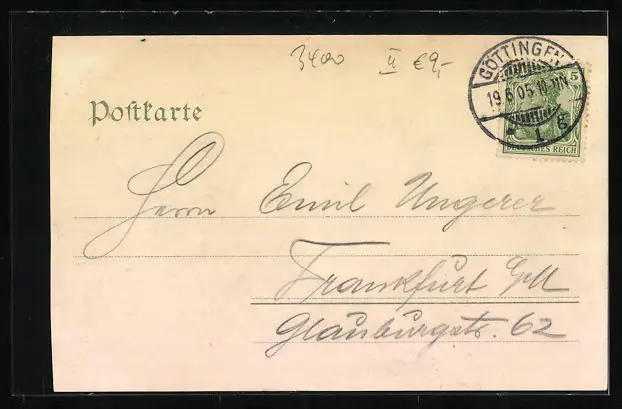 3400 II €9,-
GÖTTINGEN
19.6.05.10-11N
* 1 g
5
DEUTSCHES REICH
Postkarte
Herrn Emil Ungerer
Frankfurt a/M
Glauburgstr. 62